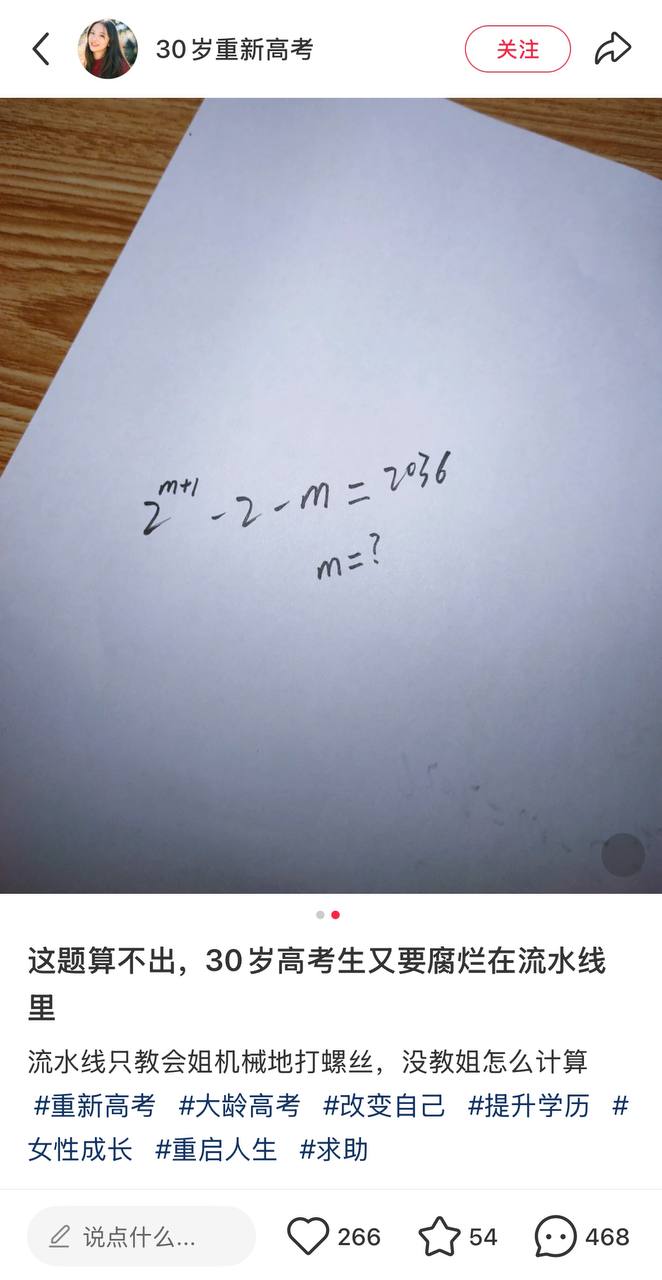 30岁重新高考
关注
2^{m+1} - 2 - m = 2036
m = ?
这题算不出，30岁高考生又要腐烂在流水线
里
流水线只教会姐机械地打螺丝，没教姐怎么计算
#重新高考 #大龄高考 #改变自己 #提升学历 #
女性成长 #重启人生 #求助
说点什么... 266 54 468